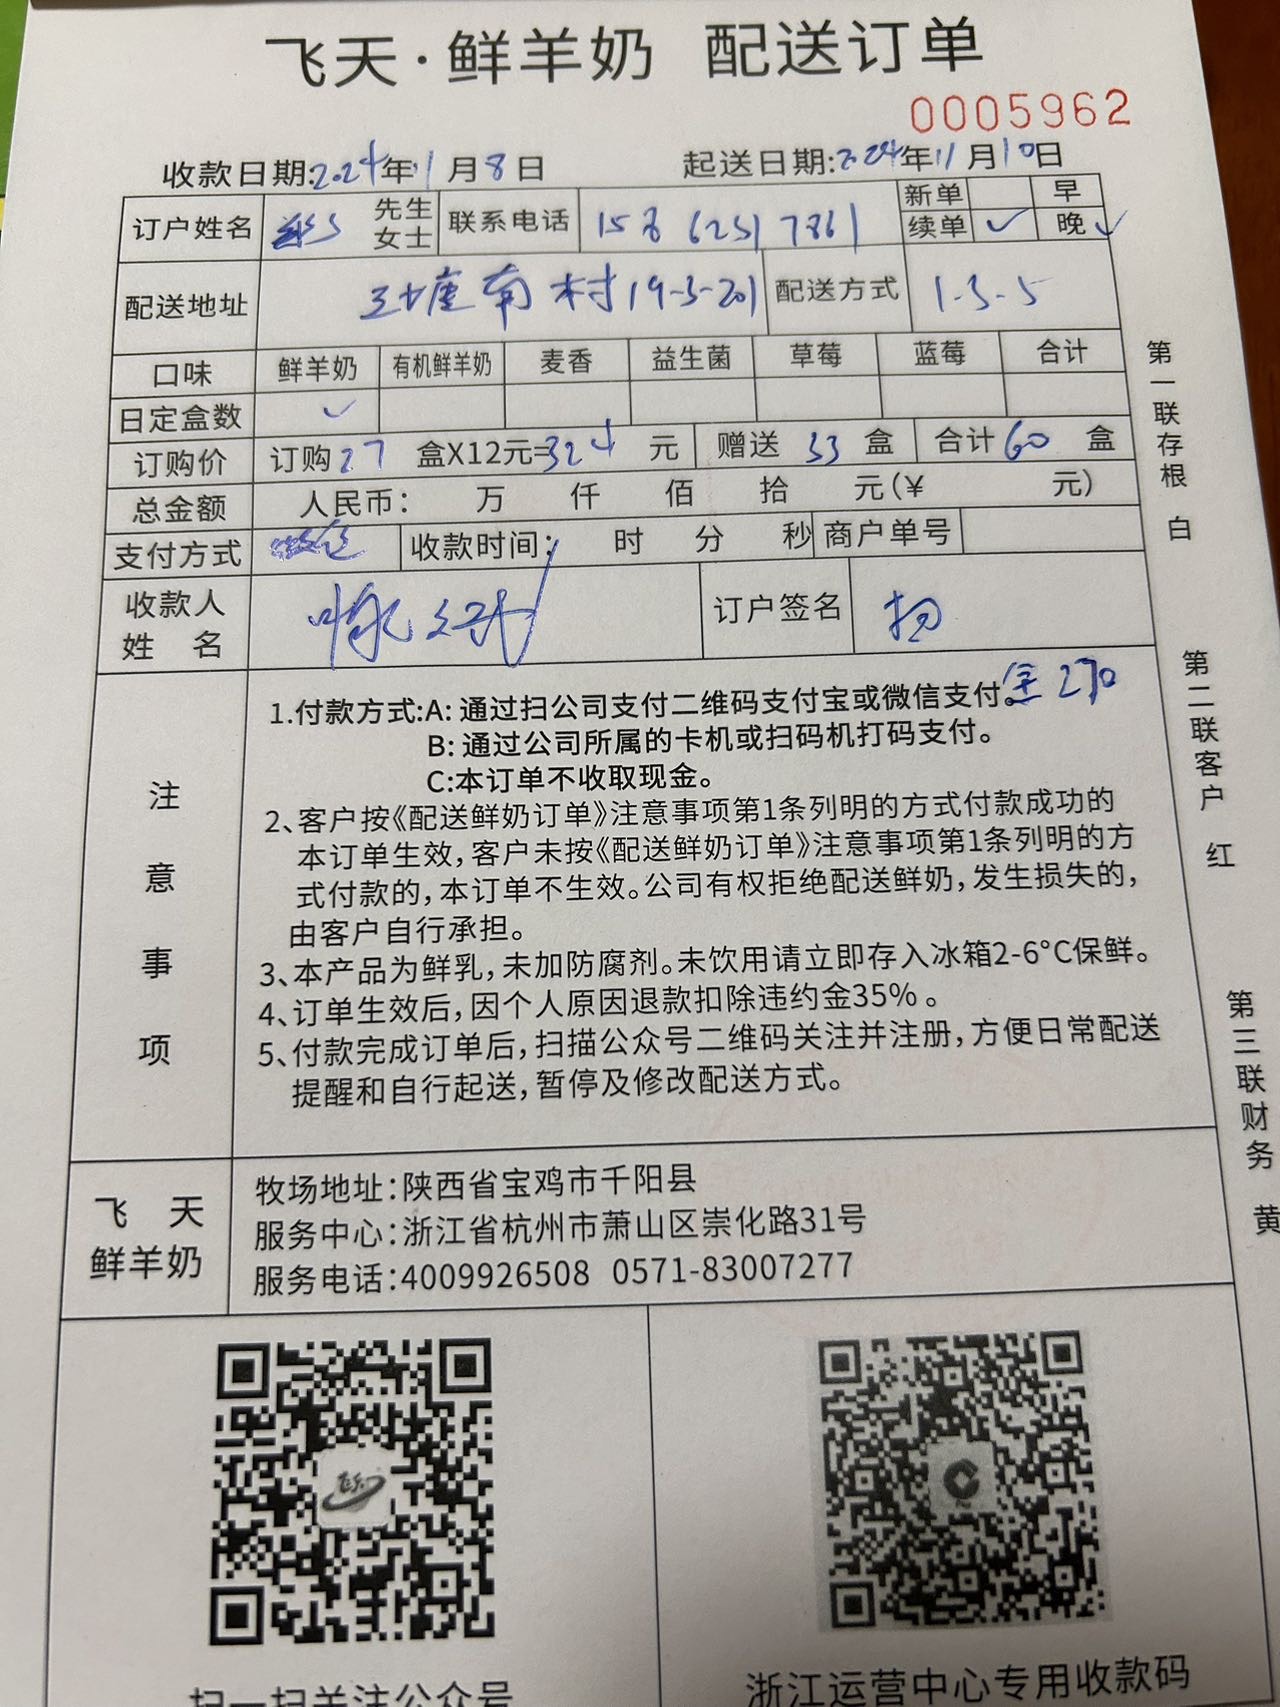 飞天·鲜羊奶 配送订单
0005962
收款日期:2024年11月8日 起送日期:2024年11月10日
订户姓名 先生 女士 联系电话 新单 续单 ✓ 早 晚 ✓
配送地址 南村19-3-201 配送方式 1-3-5
口味 鲜羊奶 有机鲜羊奶 麦香 益生菌 草莓 蓝莓 合计
日定盒数 ✓
订购价 订购27 盒X12元=324 元 赠送 33 盒 合计60 盒
总金额 人民币: 万 仟 佰 拾 元(¥ 元)
支付方式 收款时间: 时 分 秒 商户单号
收款人 姓 名 订户签名
注意事项
1.付款方式:A: 通过扫公司支付二维码支付宝或微信支付。 270
B: 通过公司所属的卡机或扫码机打码支付。
C:本订单不收取现金。
2、客户按《配送鲜奶订单》注意事项第1条列明的方式付款成功的
本订单生效,客户未按《配送鲜奶订单》注意事项第1条列明的方
式付款的,本订单不生效。公司有权拒绝配送鲜奶,发生损失的,
由客户自行承担。
3、本产品为鲜乳,未加防腐剂。未饮用请立即存入冰箱2-6°C保鲜。
4、订单生效后,因个人原因退款扣除违约金35%。
5、付款完成订单后,扫描公众号二维码关注并注册,方便日常配送
提醒和自行起送,暂停及修改配送方式。
飞天
鲜羊奶
牧场地址:陕西省宝鸡市千阳县
服务中心:浙江省杭州市萧山区崇化路31号
服务电话:4009926508 0571-83007277
扫一扫关注公众号
浙江运营中心专用收款码
第一联存根 白
第二联客户 红
第三联财务 黄